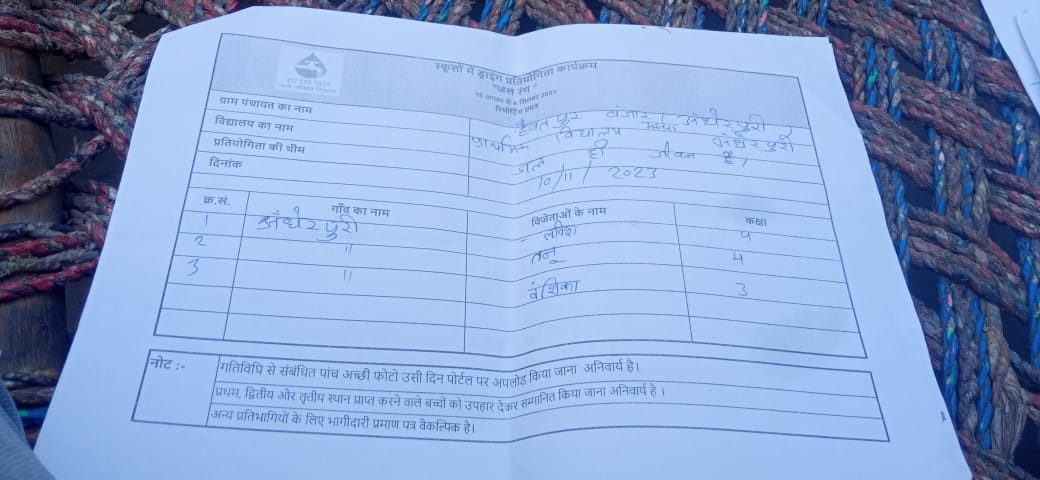 हर घर जल
जल जीवन मिशन
स्कूलों में ड्राइंग प्रतियोगिता कार्यक्रम
"जल रंग"
रिपोर्टिंग प्रपत्र
ग्राम पंचायत का नाम हैवतपुर बंजारा / अंधेरपुरी
विद्यालय का नाम प्राथमिक विद्यालय अंधेरपुरी
प्रतियोगिता की थीम जल ही जीवन है।
दिनांक 10/11/2023
क्र.सं. गाँव का नाम विजेताओं के नाम कक्षा
1 अंधेरपुरी
2 " तनू 4
3 " वंशिका 3
नोट :- गतिविधि से संबंधित पांच अच्छी फोटो उसी दिन पोर्टल पर अपलोड किया जाना अनिवार्य है।
प्रथम, द्वितीय और तृतीय स्थान प्राप्त करने वाले बच्चों को उपहार देकर सम्मानित किया जाना अनिवार्य है ।
अन्य प्रतिभागियों के लिए भागीदारी प्रमाण पत्र वैकल्पिक है।